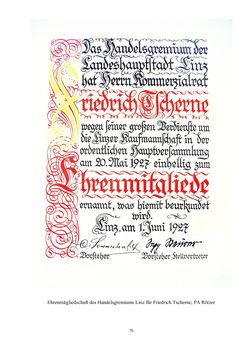 Das Handelsgremium der
Landeshauptstadt Linz
hat Herrn Kommerzialrat
Friedrich Tscherne
wegen seiner großen Verdienste um
die Linzer Kaufmannschaft in der
ordentlichen Hauptversammlung
am 20. Mai 1927 einhellig zum
Ehrenmitgliede
ernannt, was hiemit beurkundet
wird.
Linz, am 1. Juni 1927
Vorsteher Vorsteher Stellvertreter
Ehrenmitgliedschaft des Handelsgremiums Linz für Friedrich Tscherne; PA Rötzer
76